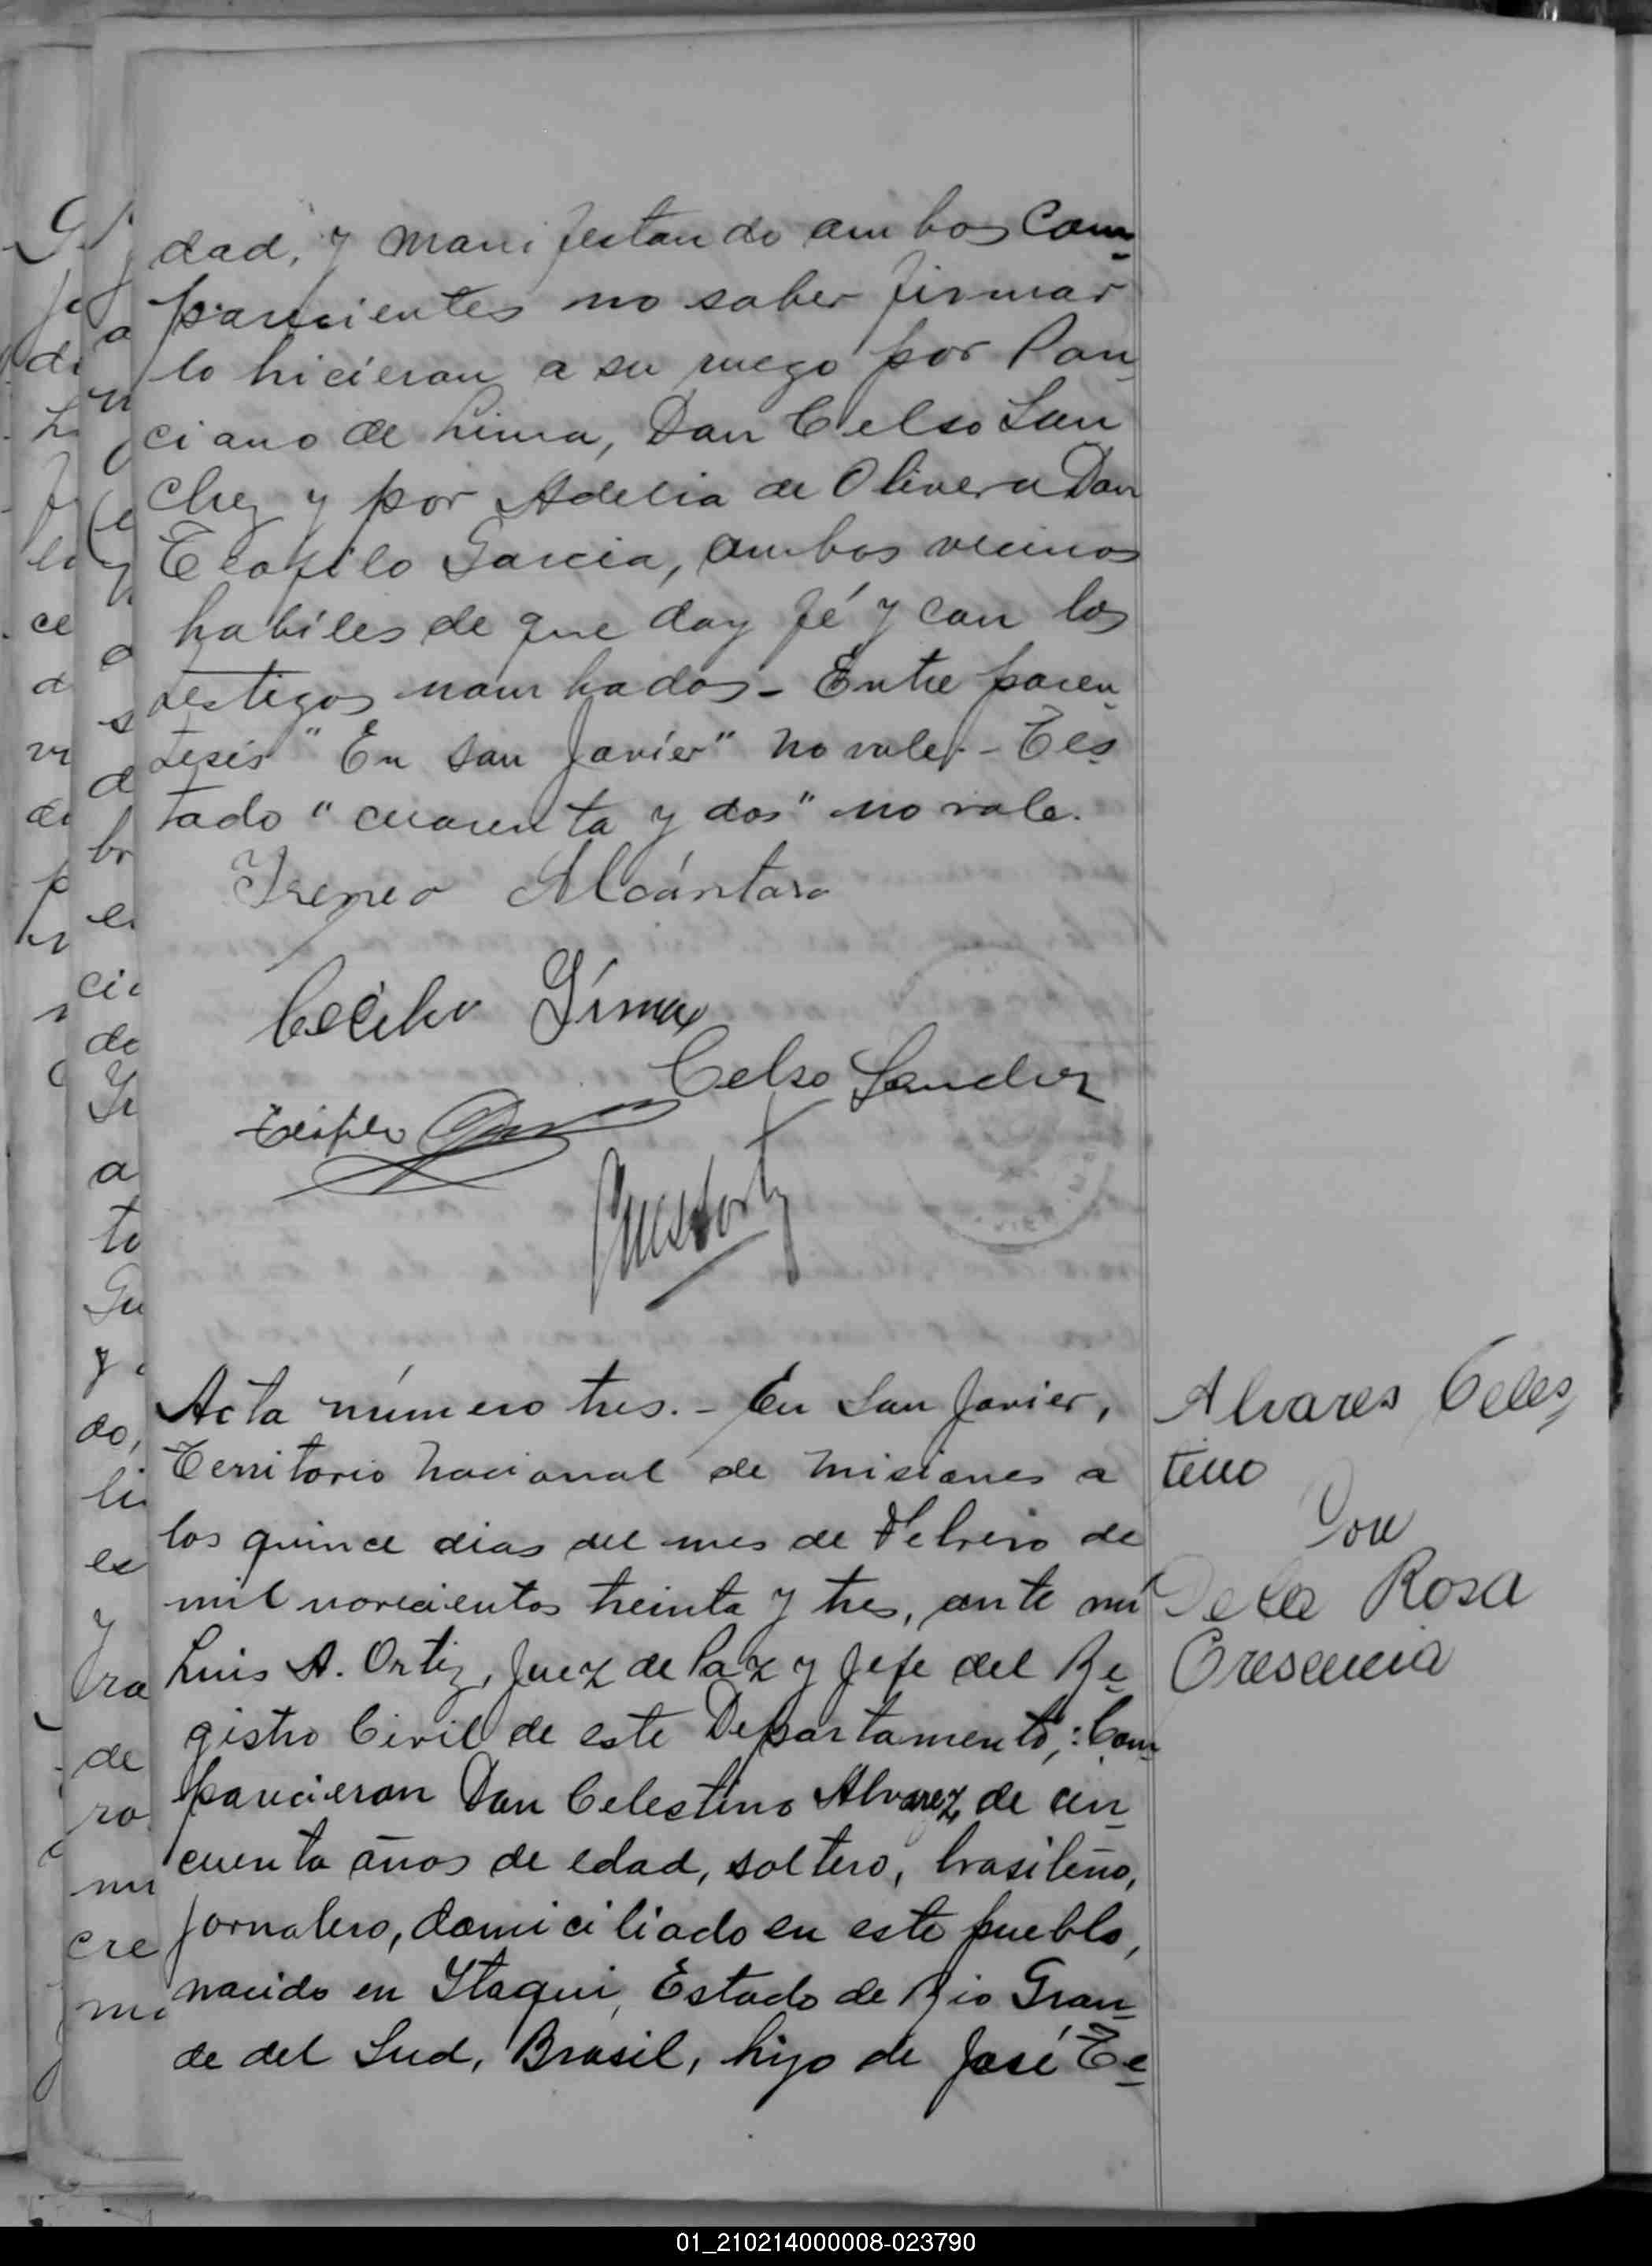 dad, y manifestando ambos com
parecientes no saber firmar
lo hicieron a su ruego por Pon
ciano de Lima, Don Celso San
chez y por Adelia de Olivera Don
Teofilo Garcia, ambos vecinos
habiles de que doy fé y con los
testigos nombrados - Entre paren
tesis "En San Javier" no vale. - Tes
tado "cuarenta y dos" no vale.
Ireneo Alcántara
Cecilio Lima
Celso Sanchez
Teofilo
Acta número tres. - En San Javier,
Territorio Nacional de Misiones a
los quince dias del mes de Febrero de
mil novecientos treinta y tres, ante mí
Luis A. Ortiz, Juez de Paz y Jefe del Re
gistro Civil de este Departamento,: Com
parecieron Don Celestino Alvarez, de cin
cuenta años de edad, soltero, brasileño,
jornalero, domiciliado en este pueblo,
nacido en Itaqui, Estado de Rio Gran
de del Sud, Brasil, hijo de José Te
Alvares Celes
tino
Con
De la Rosa
Cresencia
01_210214000008-023790